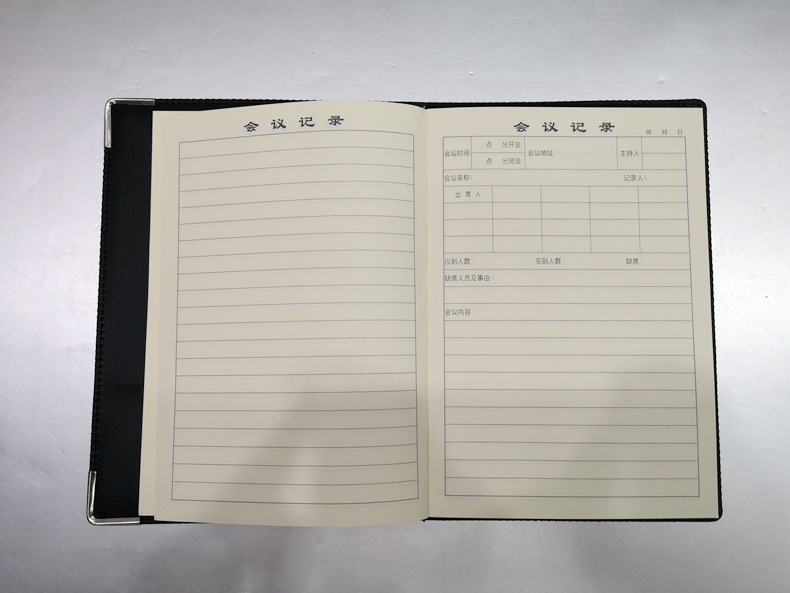 会议记录
会议记录
年 月 日
会议时间 点 分开会 会议地址 主持人
点 分闭会
会议名称: 记录人:
出席人
应到人数: 实到人数: 缺席:
缺席人员及事由:
会议内容: